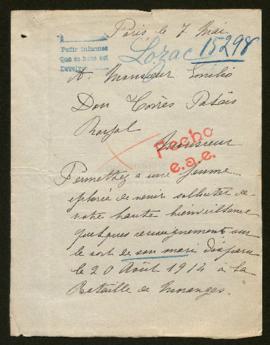 Paris le 7 Mai
Pedir informes
Lozac 15298
A Monsieur Emilio
Don Torres Palais
Royal
Monsieur
Hecho
e.a.e.
Permettez a une femme
éplorée de venir solliciter de
votre haute bienveillance
quelques renseignements sur
le sort de son mari disparu
le 20 Août 1914 à la
Bataille de